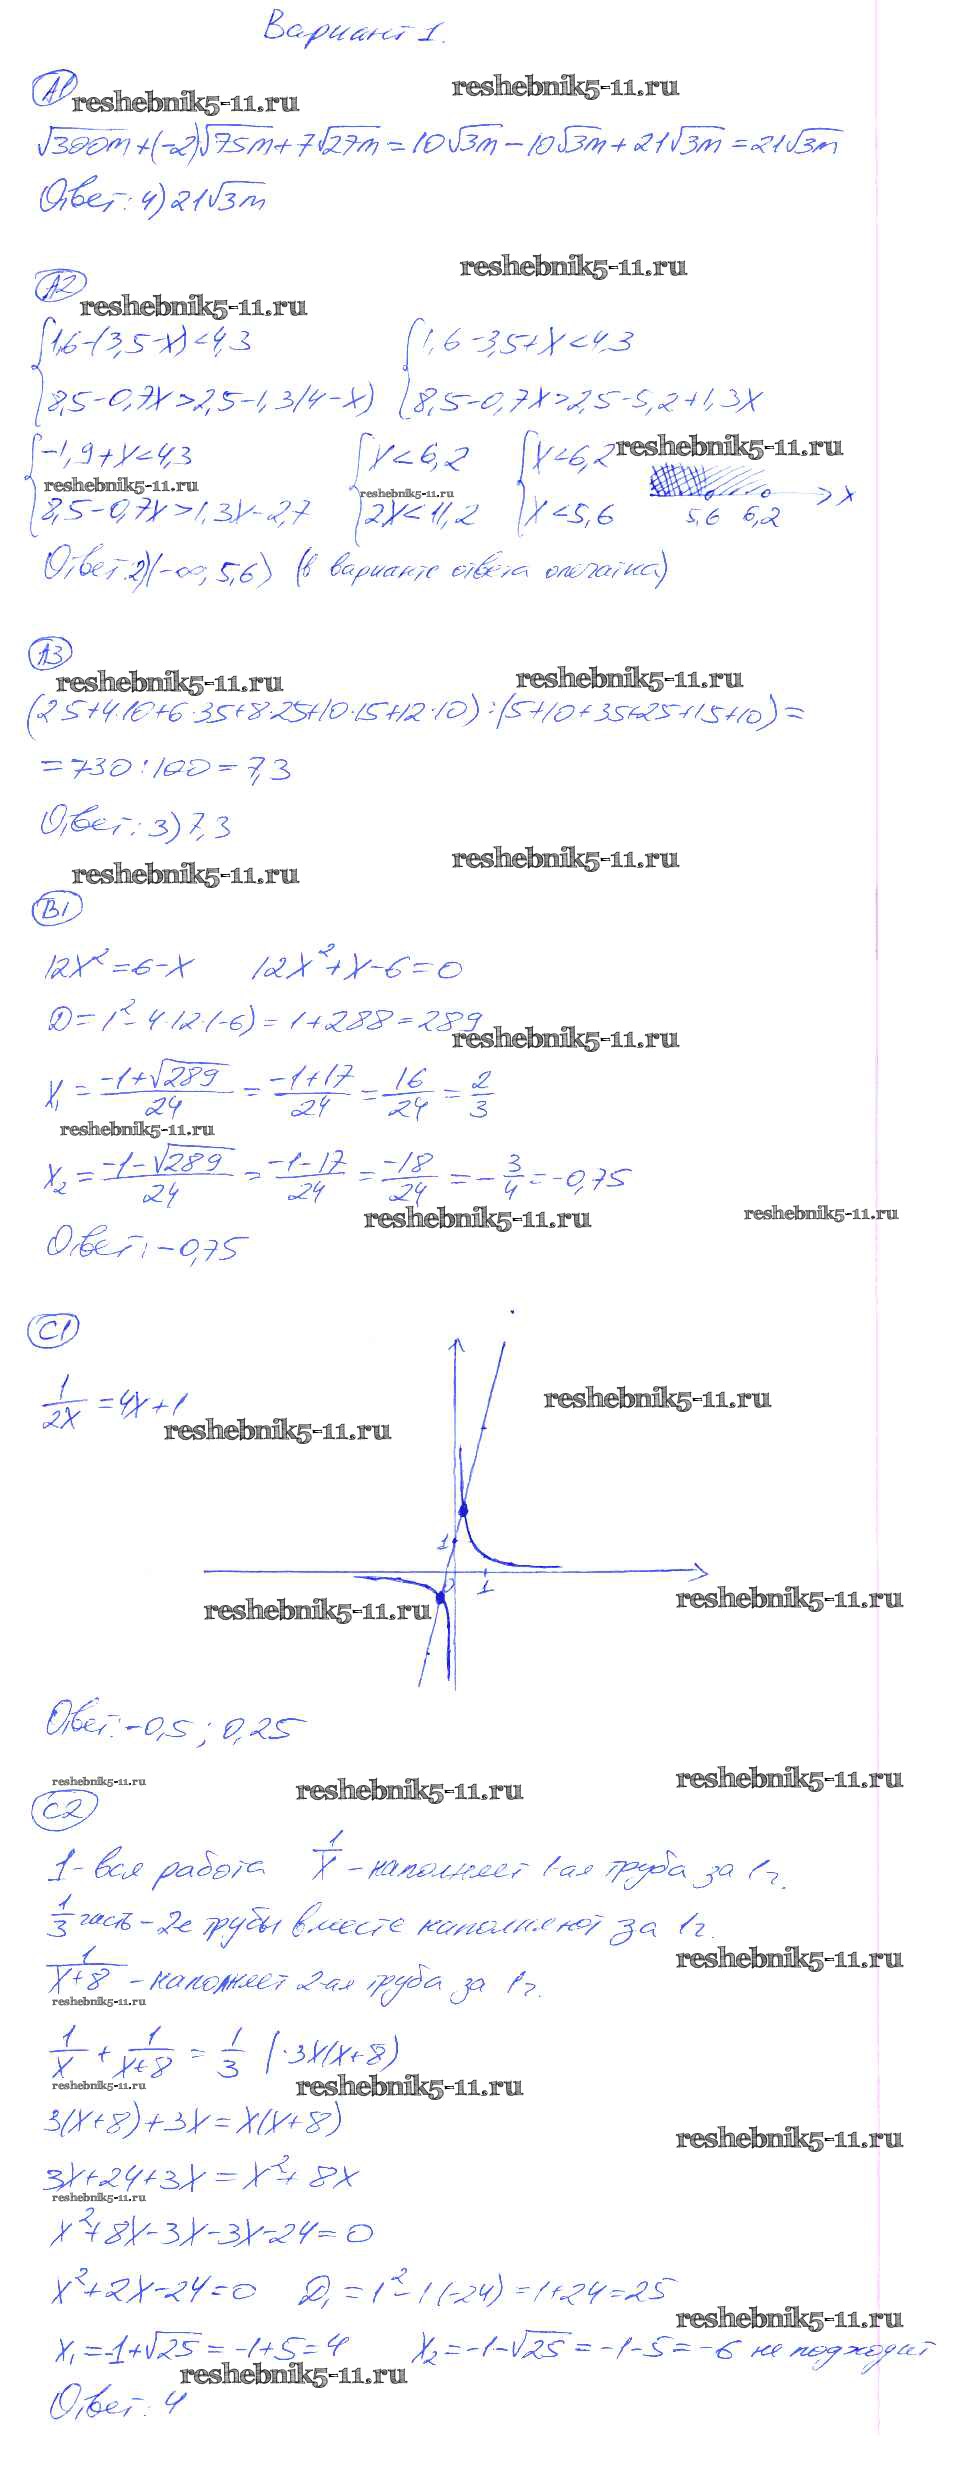 Вариант 1.
А1
reshebnik5-11.ru reshebnik5-11.ru
√300m+(-2)√75m+7√27m=10√3m-10√3m+21√3m=21√3m
Ответ: 4) 21√3m
reshebnik5-11.ru
А2
reshebnik5-11.ru
{1,6-(3,5-x)<4,3 {1,6-3,5+x<4,3
{8,5-0,7x>2,5-1,3(4-x) {8,5-0,7x>2,5-5,2+1,3x
{-1,9+x<4,3 {x<6,2 {x<6,2 reshebnik5-11.ru
reshebnik5-11.ru reshebnik5-11.ru
{8,5-0,7x>1,3x-2,7 {2x<11,2 {x<5,6 5,6 6,2 x
Ответ: 2)(-∞, 5,6) (в варианте ответа опечатка)
А3
reshebnik5-11.ru reshebnik5-11.ru
(2·5+4·10+6·35+8·25+10·15+12·10):(5+10+35+25+15+10)=
=730:100=7,3
Ответ: 3) 7,3
reshebnik5-11.ru reshebnik5-11.ru
В1
12x²=6-x 12x²+x-6=0
D=1²-4·12·(-6)=1+288=289
reshebnik5-11.ru
x₁=(-1+√289)/24=(-1+17)/24=16/24=2/3
reshebnik5-11.ru
x₂=(-1-√289)/24=(-1-17)/24=-18/24=-3/4=-0,75
reshebnik5-11.ru reshebnik5-11.ru
Ответ: -0,75
С1
1/2x=4x+1
reshebnik5-11.ru reshebnik5-11.ru
1
0 1
reshebnik5-11.ru reshebnik5-11.ru
Ответ: -0,5; 0,25
reshebnik5-11.ru reshebnik5-11.ru reshebnik5-11.ru
С2
1-вся работа 1/x-наполняет 1-ая труба за 1ч.
1/3 часть-2е трубы вместе наполняют за 1ч.
reshebnik5-11.ru
1/(x+8)-наполняет 2-ая труба за 1ч.
reshebnik5-11.ru
1/x+1/(x+8)=1/3 |·3x(x+8)
reshebnik5-11.ru reshebnik5-11.ru
3(x+8)+3x=x(x+8)
reshebnik5-11.ru
3x+24+3x=x²+8x
reshebnik5-11.ru
x²+8x-3x-3x-24=0
x²+2x-24=0 D₁=1²-1(-24)=1+24=25
reshebnik5-11.ru
x₁=-1+√25=-1+5=4 x₂=-1-√25=-1-5=-6 не подходит
reshebnik5-11.ru
Ответ: 4